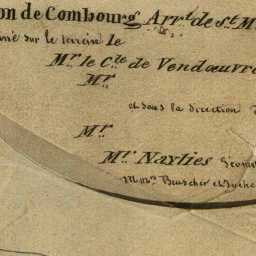 on de Combourg Arr.t de St. M
iné sur le terrein le
Mr. le C.te de Vendœuvre
Mr
et sous la direction
Mr
Mr. Naylies Geomet
MMrs. Beuscher et